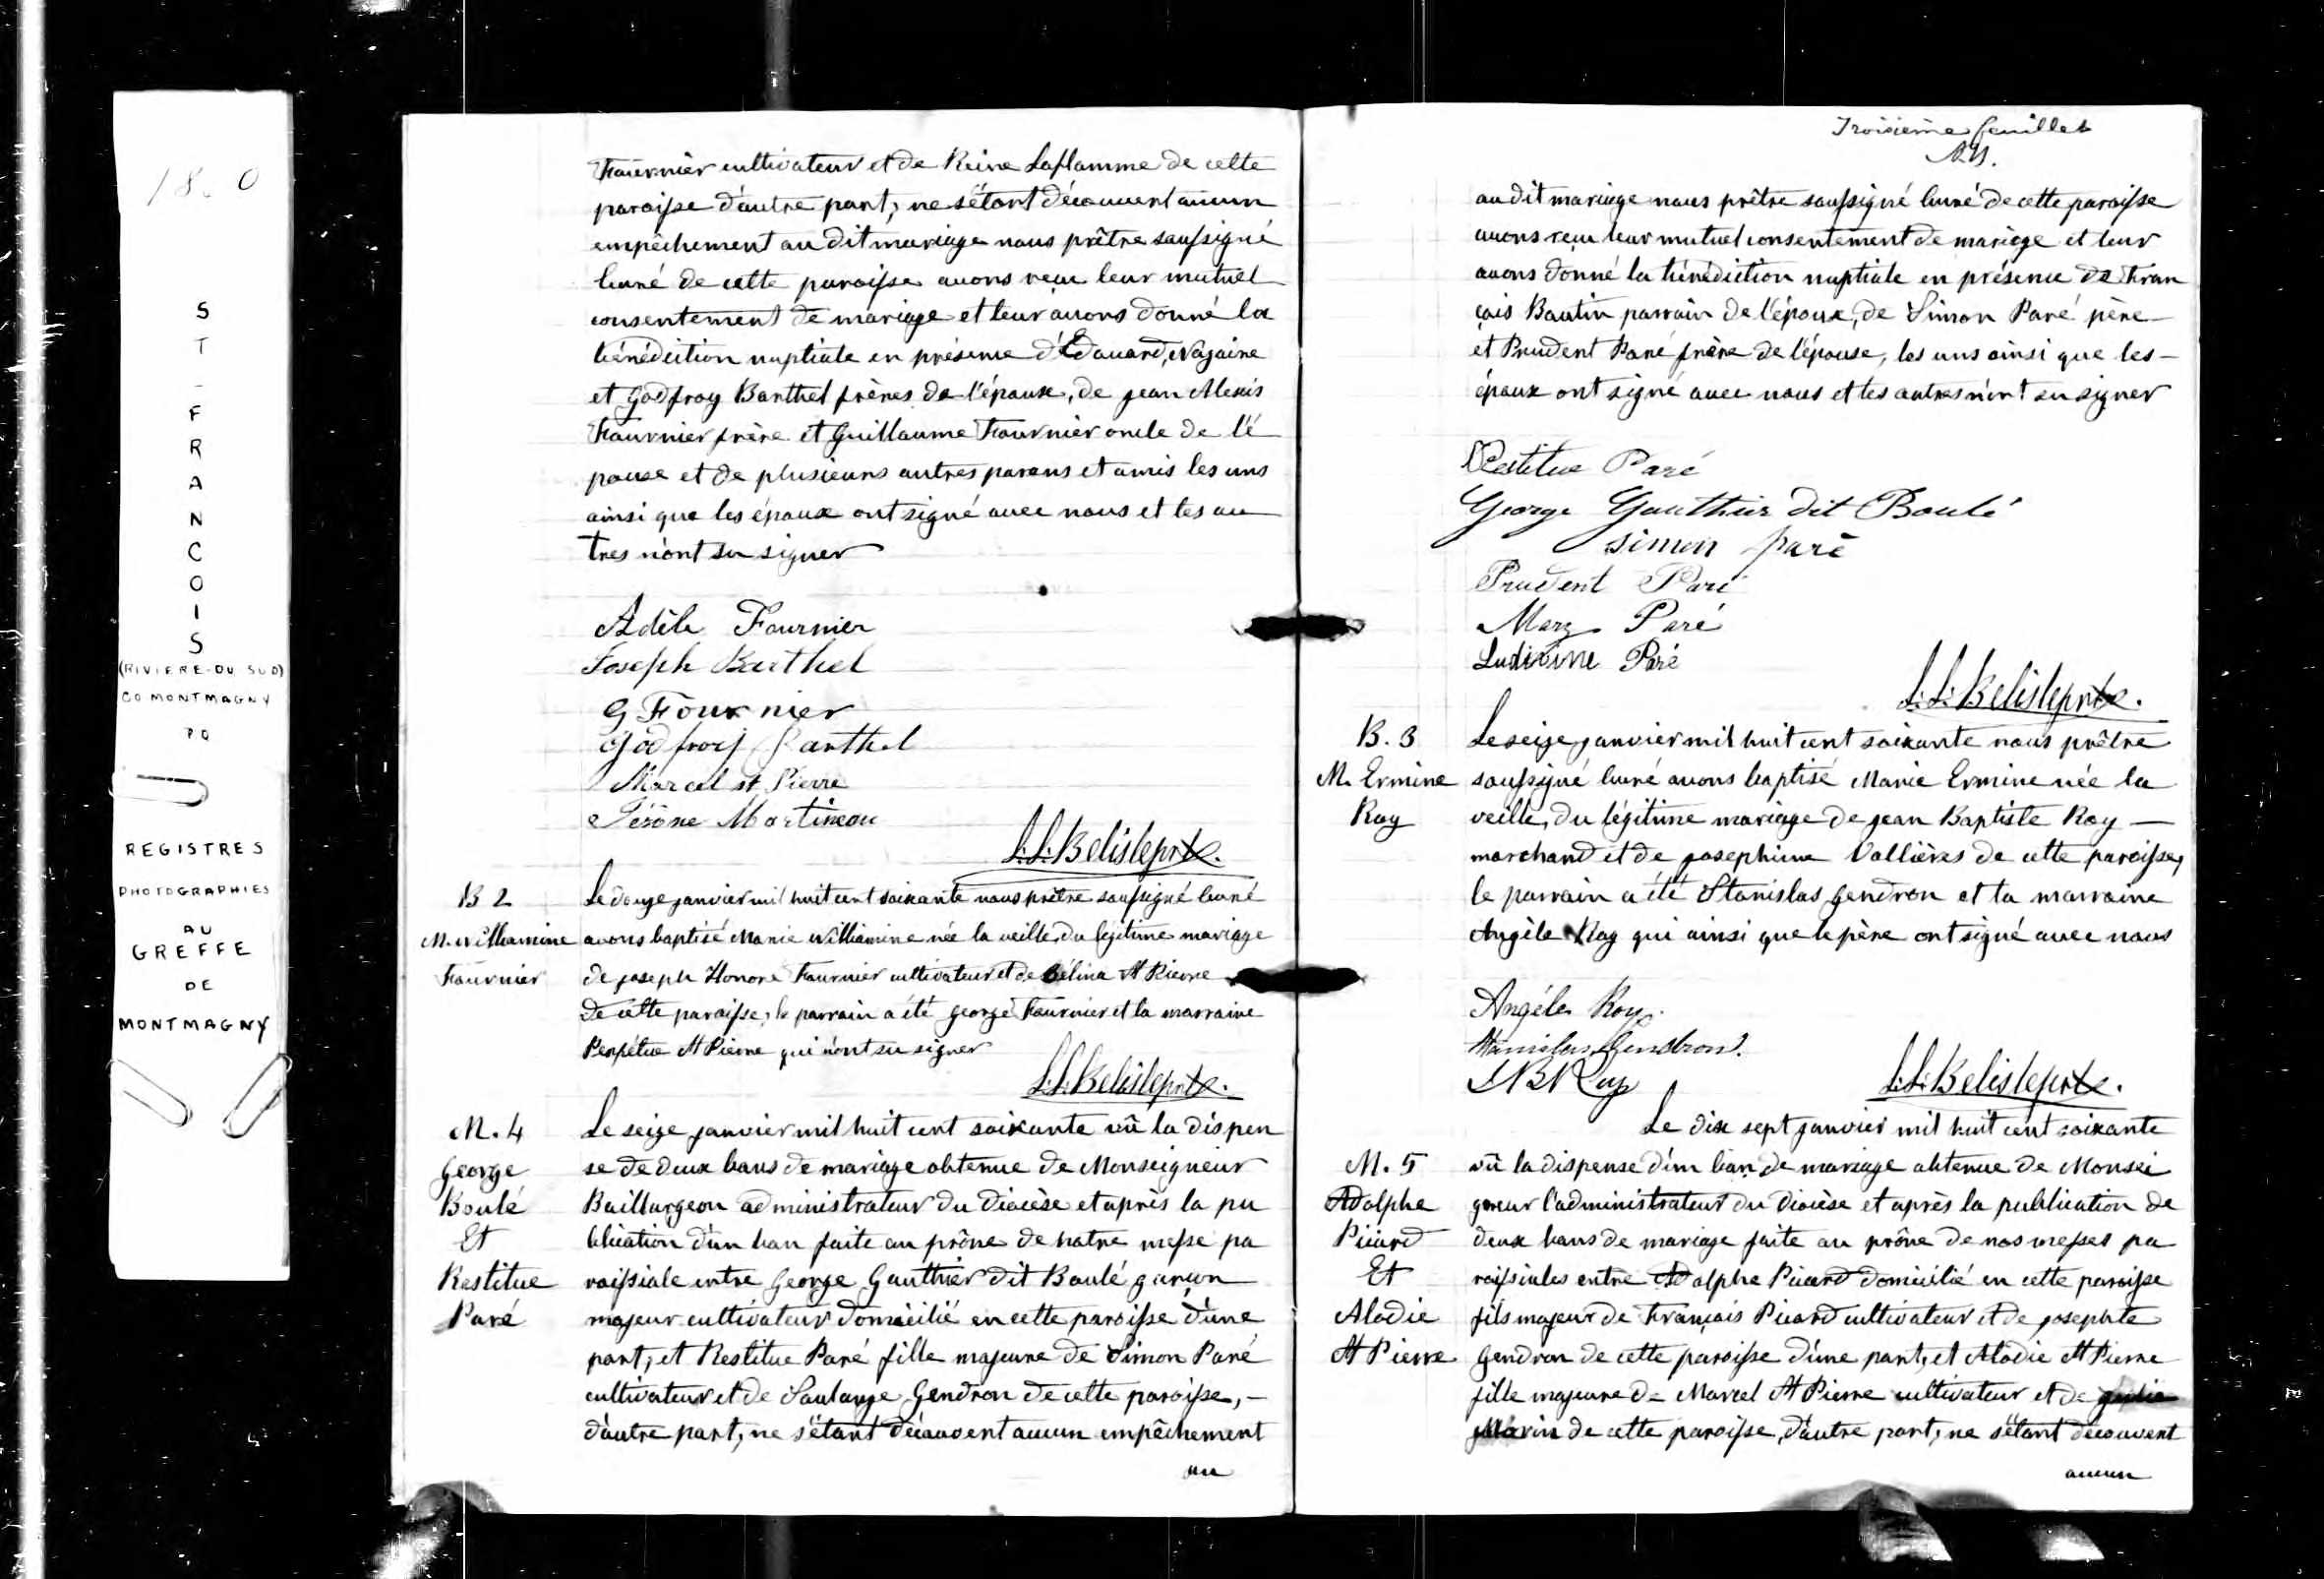 18 0
ST-FRANCOIS
(RIVIERE-DU SUD)
CO MONTMAGNY
PQ
REGISTRES
PHOTOGRAPHIES
AU
GREFFE
DE
MONTMAGNY
Fournier cultivateur et de Reine Laflamme de cette
paroisse d'autre part, ne s'étant découvert aucun
empêchement au dit mariage nous prêtre soussigné
Curé de cette paroisse avons reçu leur mutuel
consentement de mariage et leur avons donné la
bénédiction nuptiale en présence d'Edouard, Nazaire
et Godfroy Barthel frères de l'époux, de Jean Alexis
Fournier frère et Guillaume Fournier oncle de l'é
pouse et de plusieurs autres parens et amis les uns
ainsi que les époux ont signé avec nous et les au
tres n'ont su signer
Adèle Fournier
Joseph Barthel
G Fournier
Godfroy Barthel
Marcel st Pierre
Jérôme Martineau
L:L:Belisle ptre.
B 2
M. Williamine
Fournier
Le douze janvier mil huit cent soixante nous prêtre soussigné Curé
avons baptisé Marie Williamine née la veille, du légitime mariage
de Joseph Honoré Fournier cultivateur et de Célina St Pierre
de cette paroisse, le parrain a été George Fournier et la marraine
Perpétue St Pierre qui n'ont su signer
L:L:Belisle ptre.
M. 4
George
Boulé
Et
Restitue
Paré
Le seize janvier mil huit cent soixante vû la dispen
se de deux bans de mariage obtenue de Monseigneur
Baillargeon administrateur du Diocèse et après la pu
blication d'un ban faite au prône de notre messe pa
roissiale entre George Gauthier dit Boulé garçon
majeur cultivateur domicilié en cette paroisse d'une
part, et Restitue Paré fille majeure de Simon Paré
cultivateur et de Soulange Gendron de cette paroisse, –
d'autre part, ne s'étant découvert aucun empêchement
au
Troisième feuillet
au dit mariage nous prêtre soussigné Curé de cette paroisse
avons reçu leur mutuel consentement de mariage et leur
avons donné la bénédiction nuptiale en présence de Fran
çois Boutin parrain de l'époux, de Simon Paré père –
et Prudent Paré frère de l'épouse, les uns ainsi que les –
époux ont signé avec nous et les autres n'ont su signer
Restitue Paré
George Gauthier dit Boulé
simon paré
Prudent Paré
Mary Paré
Ludivine Paré
L:L:Belisle ptre.
B. 3
M. Ermine
Roy
Le seize janvier mil huit cent soixante nous prêtre
soussigné Curé avons baptisé Marie Ermine née la
veille, du légitime mariage de Jean Baptiste Roy —
marchand et de Josephine Vallières de cette paroisse,
le parrain a été Stanislas Gendron et la marraine
Angèle Roy qui ainsi que le père ont signé avec nous
Angéle Roy.
Stanislas Gendron.
J B Roy
L:L:Belisle ptre.
M. 5
Adolphe
Picard
Et
Alodie
St Pierre
Le dix sept janvier mil huit cent soixante
vû la dispense d'un ban de mariage obtenue de Monsei
gneur l'administrateur du Diocèse et après la publication de
deux bans de mariage faite au prône de nos messes pa
roissiales entre Adolphe Picard domicilié en cette paroisse
fils majeur de François Picard cultivateur et de Josephte
Gendron de cette paroisse d'une part, et Alodie St Pierre
fille majeure de Marcel St Pierre cultivateur et de
Morin de cette paroisse, d'autre part, ne s'étant découvert
aucun